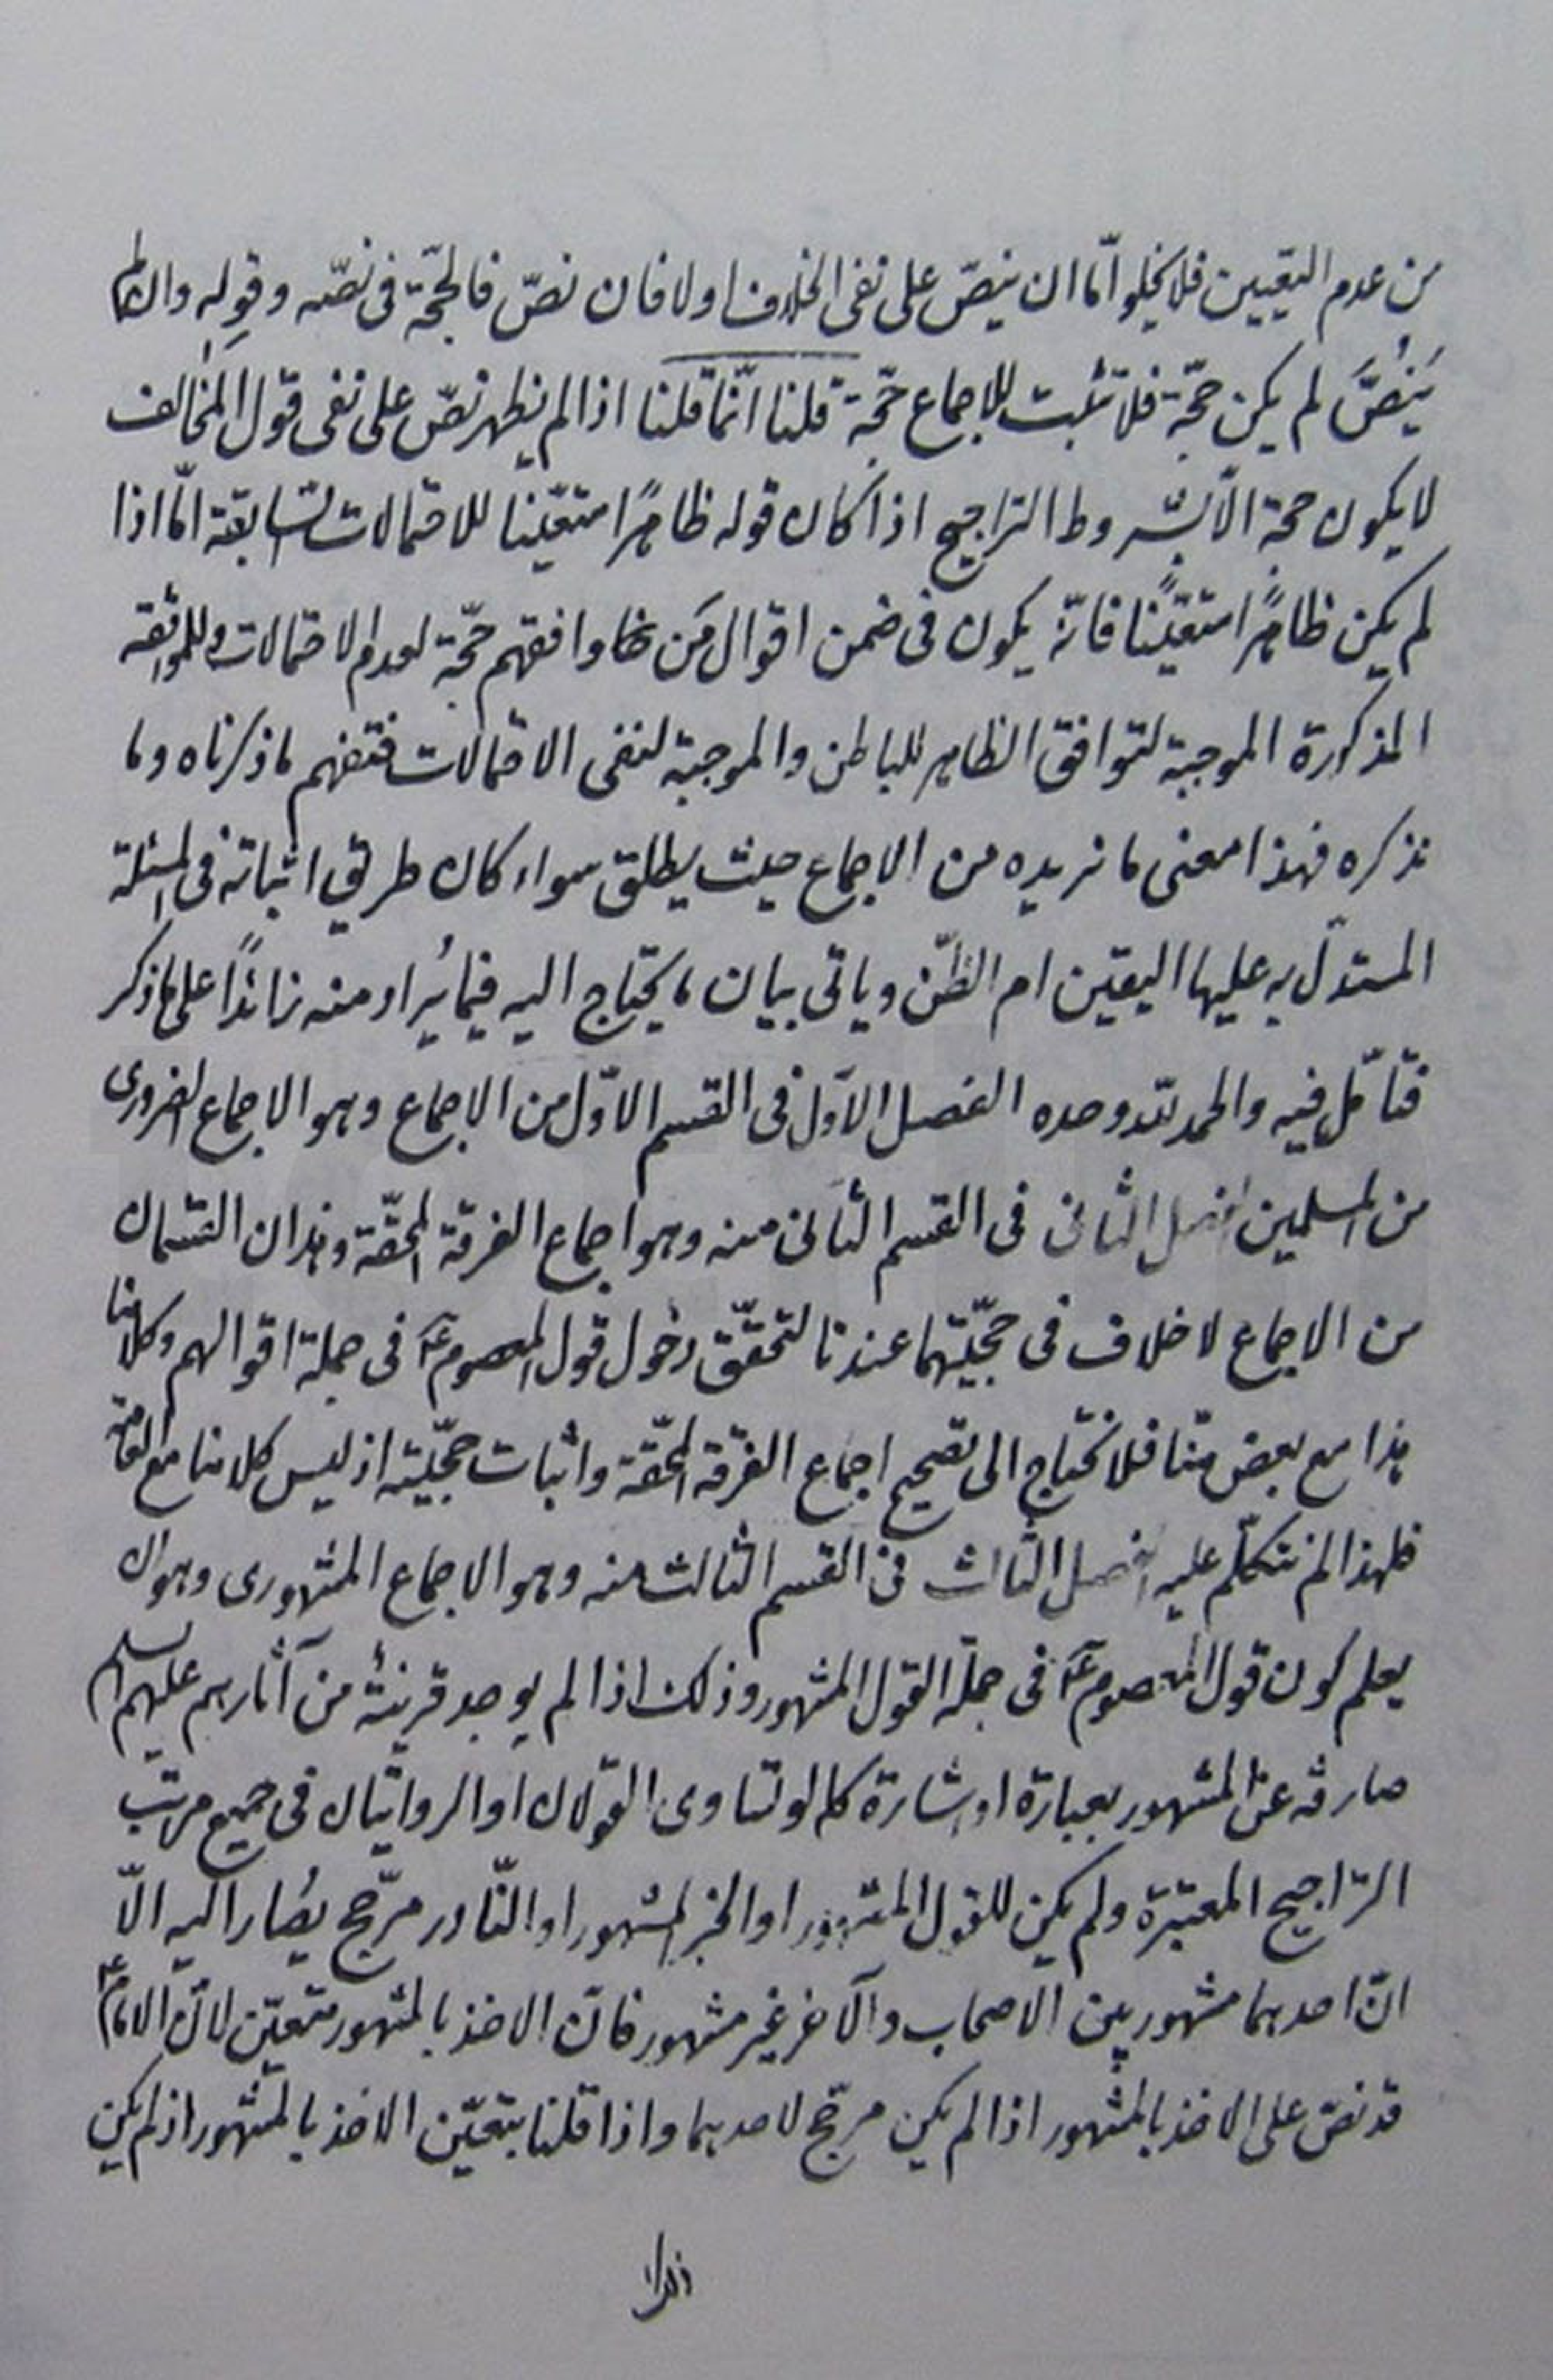 من عدم التعيين فلا يخلو امّا ان ينصّ على نفى الخلاف اولا فان نصّ فالحجّة فى نصّه وقوله وان لم
يَنُصَّ لم يكن حجّة فلا تثبت للاجماع حجّة قلنا انّما قلنا اذا لم يظهر نصّ على نفى قول المخالف
لا يكون حجة الّا بشروط التراجيح اذا كان قوله ظاهرًا متعيّنا للاحتمالات السّابقة امّا اذا
لم يكن ظاهرًا متعيّنًا فانّه يكون فى ضمن اقوال مَن وافقهم حجّة لعدم الاحتمالات وللموافقة
المذكورة الموجبة لتوافق الظاهر للباطن والموجبة لنفى الاحتمالات فتفهم ما ذكرناه وما
نذكره فهذا معنى ما نريده من الاجماع حيث يطلق سواء كان طريق اثباته فى المسئلة
المستدلّ به عليها اليقين ام الظّن وياتى بيان ما يحتاج اليه فيما يُراد منه زائدًا على ما ذكر
فتأمّل فيه والحمد للّه وحده الفصل الاوّل فى القسم الاوّل من الاجماع وهو الاجماع الضرورى
من المسلمين الفصل الثانى فى القسم الثانى منه وهو اجماع الفرقة المحقّة وهذان القسمان
من الاجماع لا خلاف فى حجّيّتهما عندنا لتحقّق دخول قول المعصوم ع فى جملة اقوالهم وكلامنا
هذا مع بعض منّا فلا نحتاج الى تصحيح اجماع الفرقة المحقّة واثبات حجّيّته اذ ليس كلامنا مع العامّة
فلهذا لم نتكلّم عليه الفصل الثالث فى القسم الثالث منه وهو الاجماع المشهورى وهو ان
يعلم كون قول المعصوم ع فى جملة القول المشهور وذلك اذا لم يوجد قرينة من آثارهم عليهم السلام
صارفة عن المشهور بعبارة او اشارة كما لو تساوى القولان او الروايتان فى جميع مراتب
التراجيح المعتبرة ولم يكن للقول المشهور او الخبر المشهور او النّادر مرّجح يصُار اليه الّا
انّ احدهما مشهور بين الاصحاب والآخر غير مشهور فانّ الاخذ بالمشهور متعيّن لانّ الامام ع
قد نصّ على الاخذ بالمشهور اذا لم يكن مرجّح لاحدهما واذا قلنا بتعيّن الاخذ بالمشهور اذ لم يكن